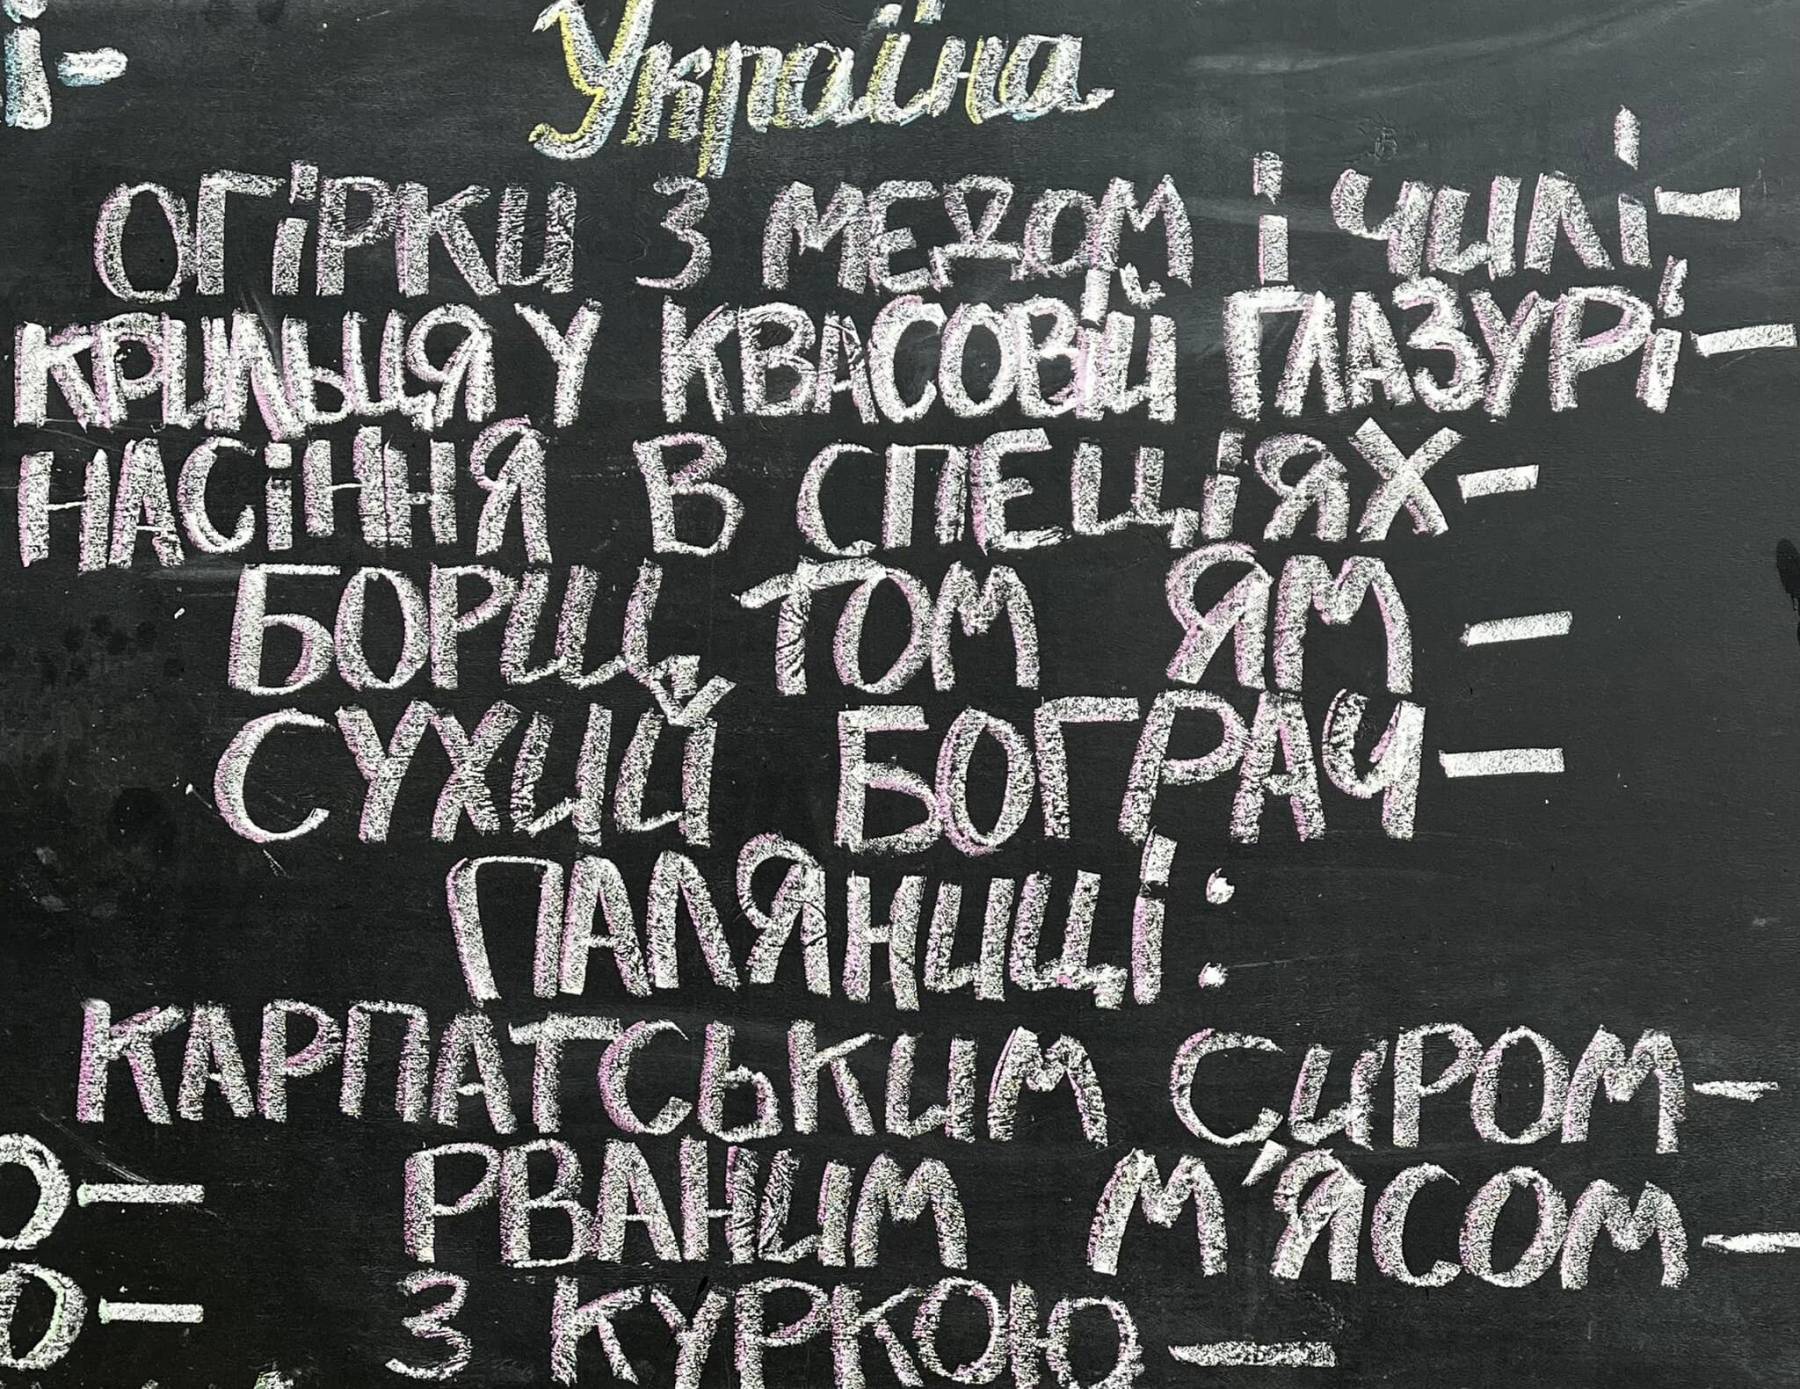 і-
Україна
ОГіРКИ З МЕДОМ і ЧИЛі-
КРИЛЬЦЯ У КВАСОВіЙ ГЛАЗУРі-
НАСіННЯ В СПЕЦіЯХ-
БОРЩ ТОМ ЯМ -
СУХИЙ БОГРАЧ-
ПАЛЯНИЦі:
КАРПАТСЬКИМ СИРОМ-
РВАНИМ М'ЯСОМ-
З КУРКОЮ-